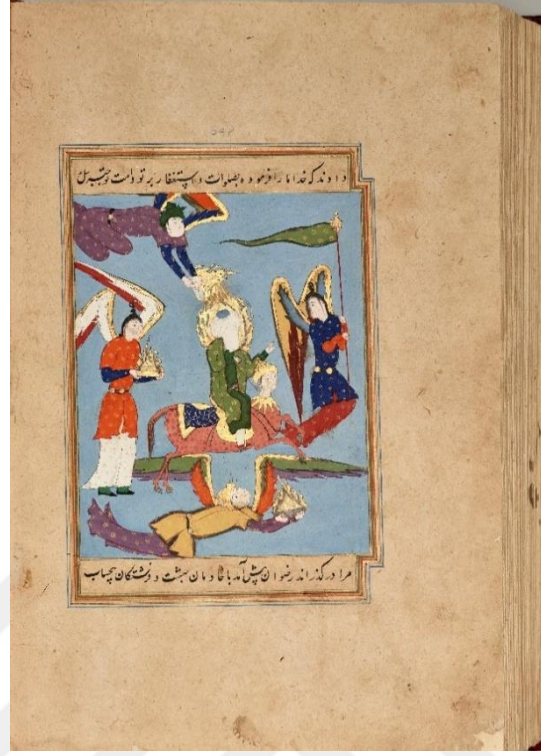 دادند که خدا ما را فرموده بصلوات و استغفار بر تو و امت تو جبرئیل
مرا درگذراند رضوان پیش آمد با خادمان بهشت و فرشتگان بیحساب